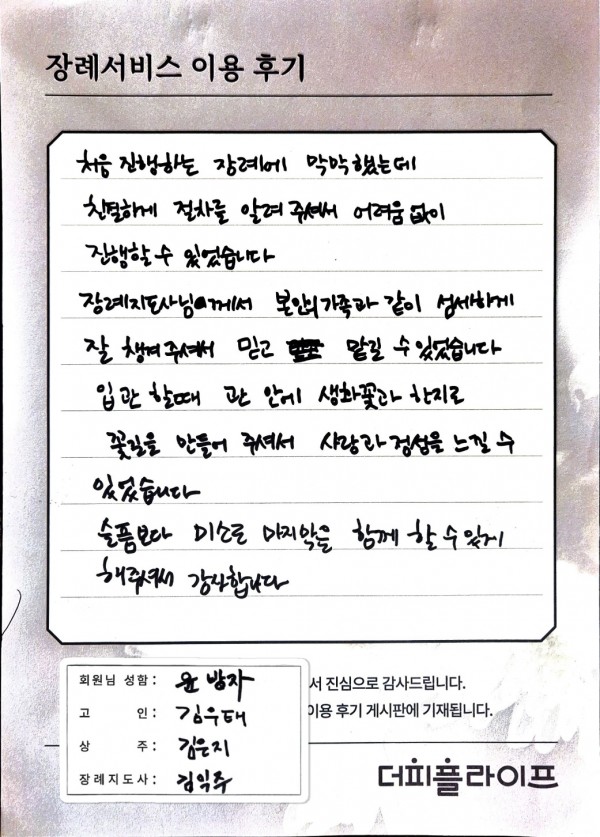 장례서비스 이용 후기
처음 진행하는 장례에 막막했는데
친절하게 절차를 알려 주셔서 어려움 없이
진행할 수 있었습니다
장례지도사님께서 본인의 가족과 같이 섬세하게
잘 챙겨주셔서 믿고 맡길 수 있었습니다
입관 할때 관 안에 생화꽃과 한지로
꽃길을 만들어 주셔서 사랑과 정성을 느낄 수
있었습니다
슬픔보다 미소로 마지막을 함께 할 수 있게
해주셔서 감사합니다
회원님 성함 : 윤방자
서 진심으로 감사드립니다.
고 인 : 김우태
이용 후기 게시판에 기재됩니다.
상 주 : 김은지
장례지도사 : 김익주
더피플라이프